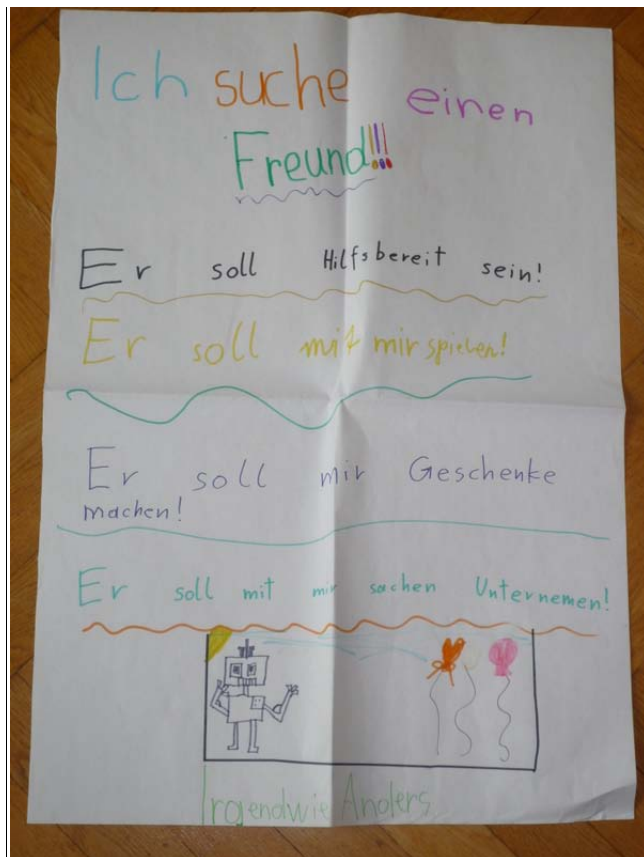 Ich suche einen
Freund!!!
Er soll Hilfsbereit sein!
Er soll mit mir spielen!
Er soll mir Geschenke
machen!
Er soll mit mir sachen Unternemen!
Irgendwie Anders